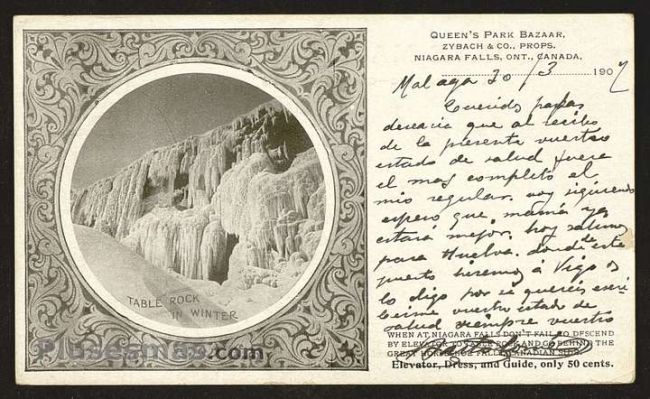 TABLE ROCK
IN WINTER
Plusesmas.com
QUEEN'S PARK BAZAAR,
ZYBACH & CO., PROPS.
NIAGARA FALLS, ONT., CANADA.
Malaga 20/3 1907
Queridos papas
desearia que al recibo
de la presente vuestro
estado de salud fuese
el mas completo el
mio regular. voy siguiendo
espero que mamá ya
estará mejor. hoy salimos
para Huelva. donde de este
puerto iremos á Vigo os
lo digo por si quereis escri
birme vuestro estado de
salud siempre vuestro
WHEN AT NIAGARA FALLS DON'T FAIL TO DESCEND
BY ELEVATOR TO TABLE ROCK AND GO BEHIND THE
GREAT HORSESHOE FALL CANADIAN SIDE
Elevator, Dress, and Guide, only 50 cents.